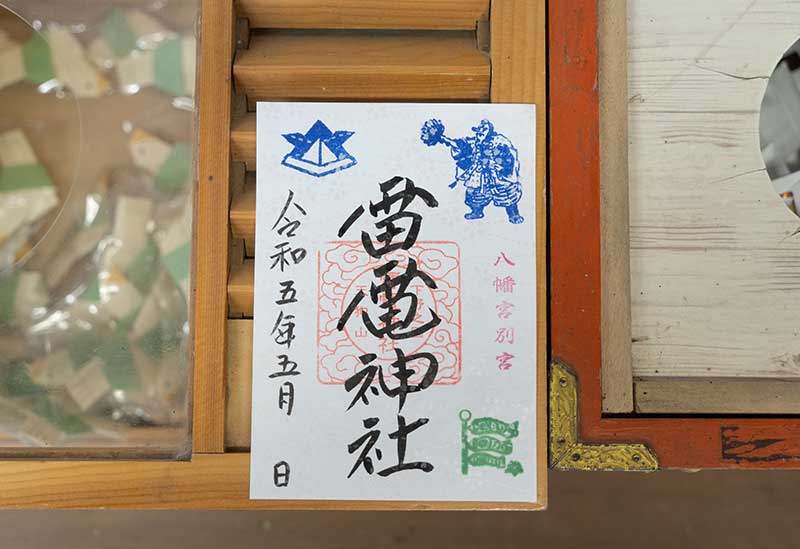 八幡宮別宮
雷電神社
令和五年五月　日